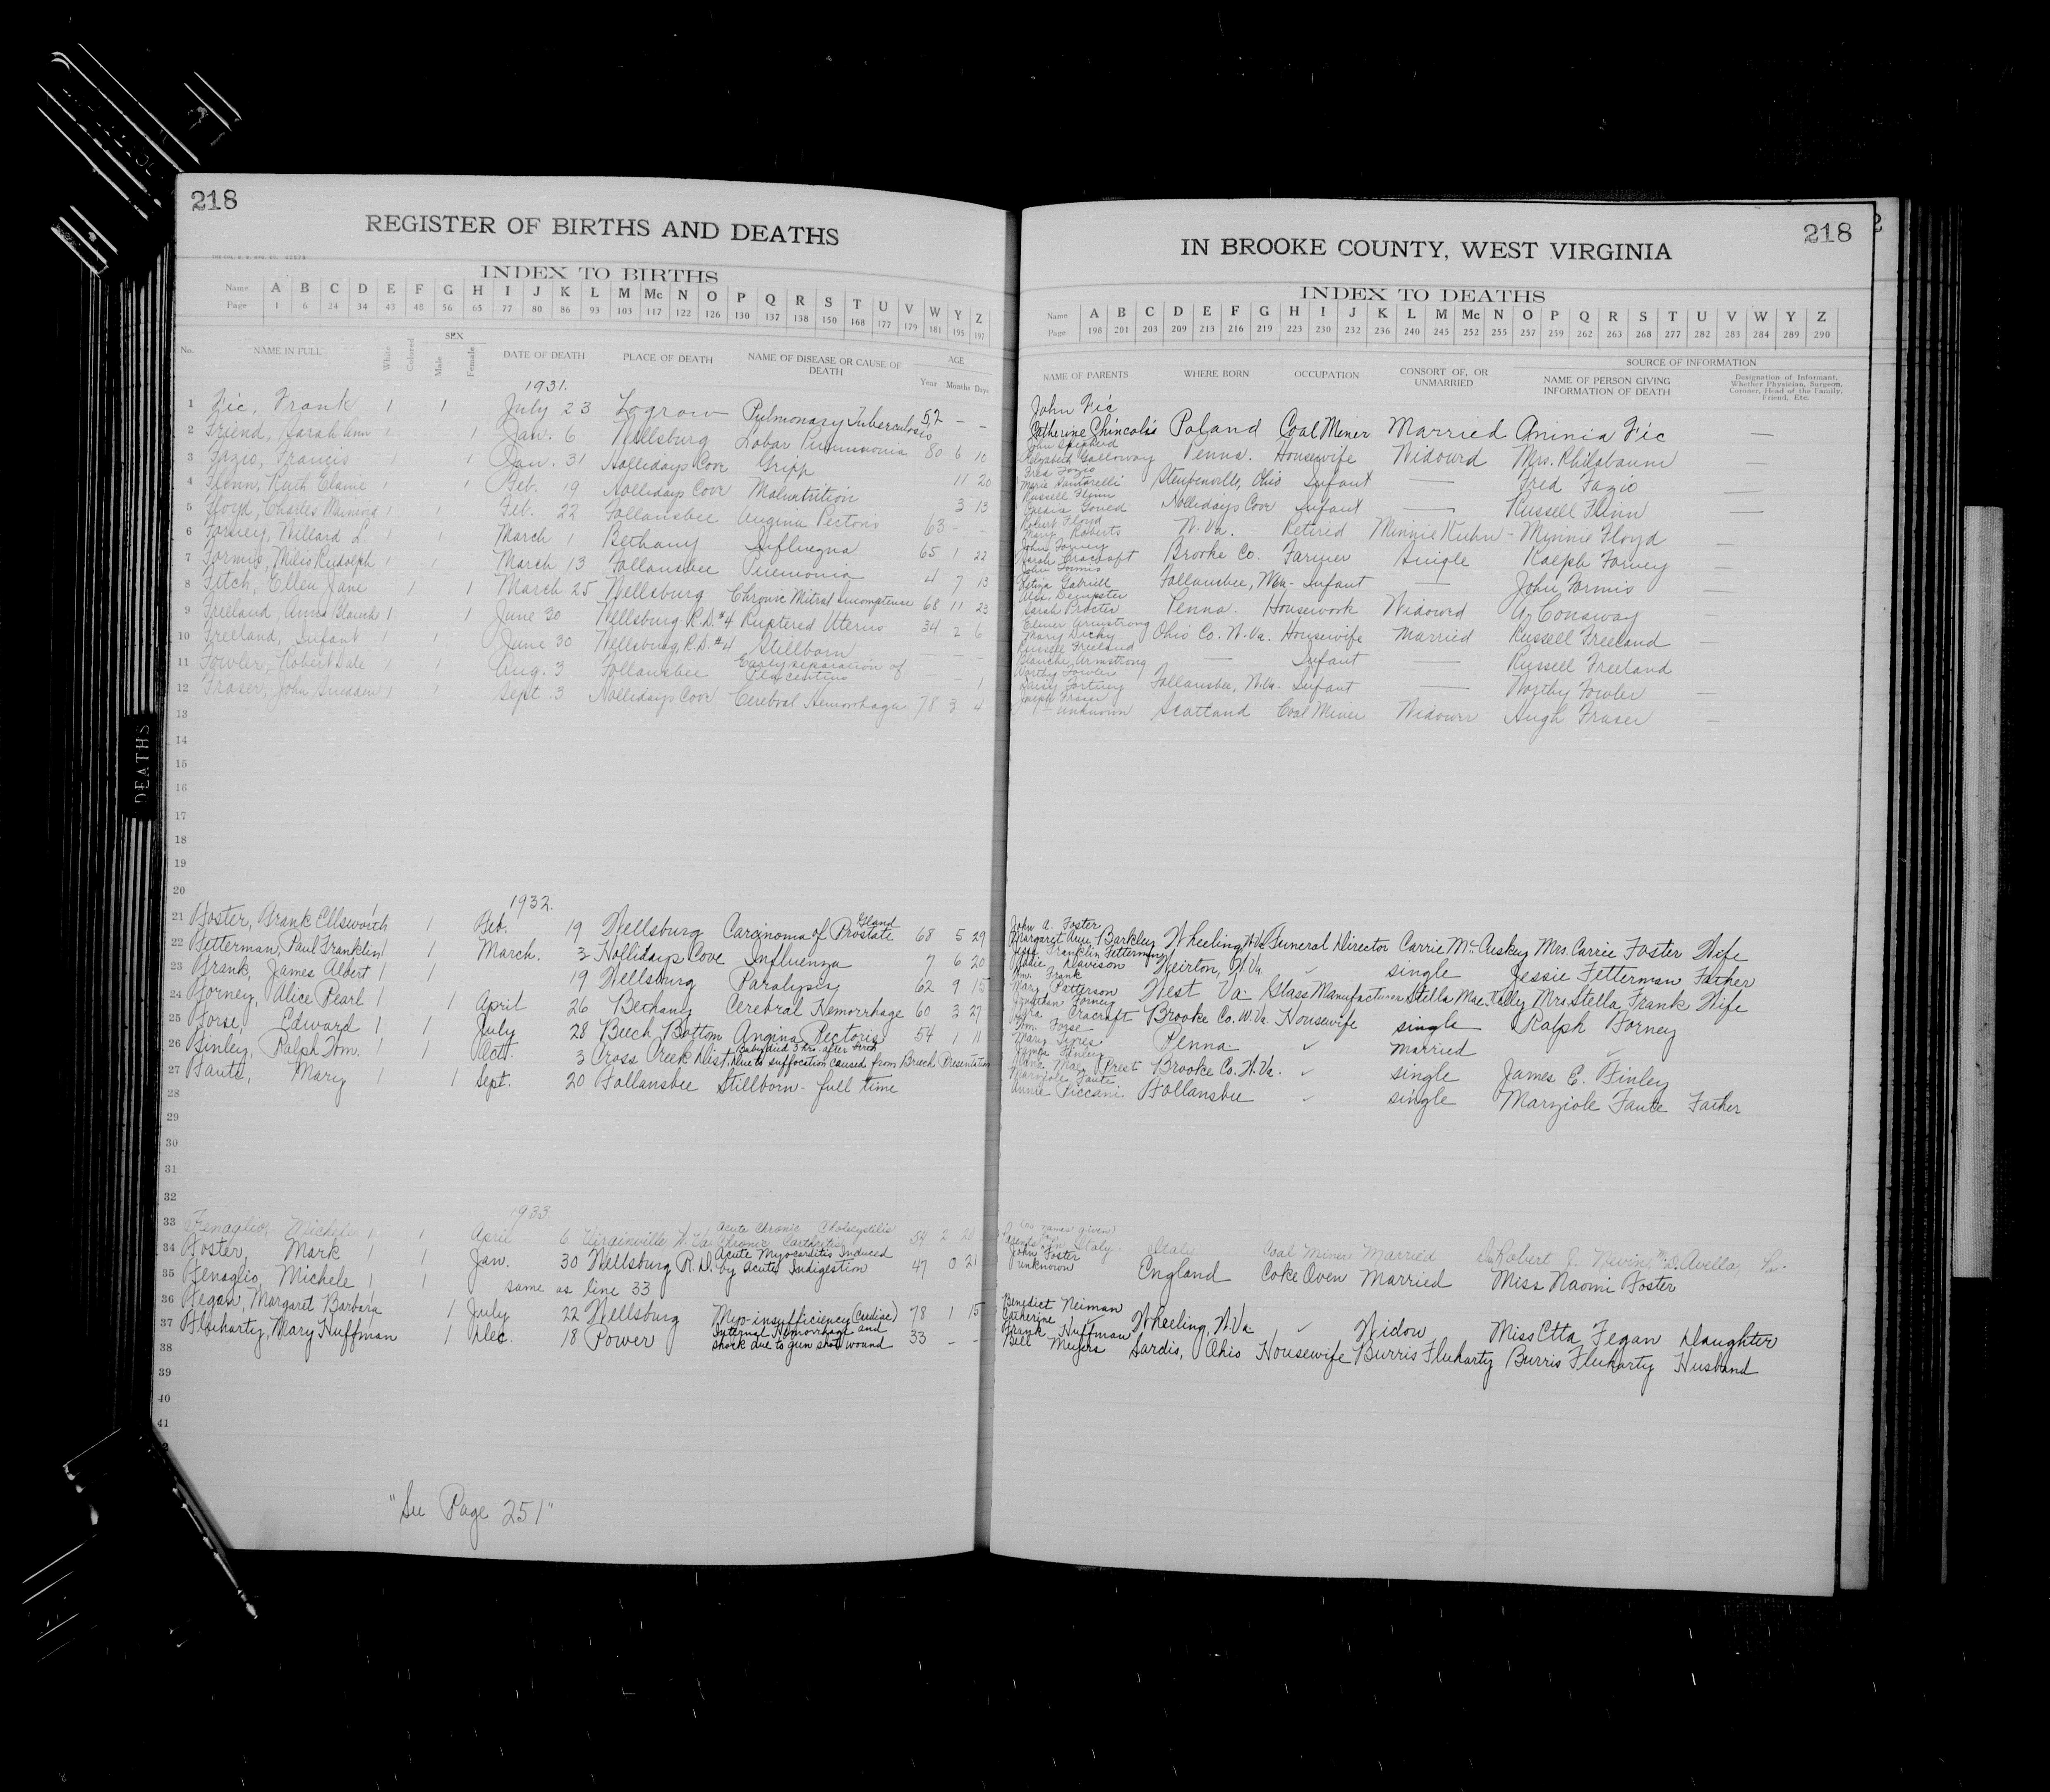 218
REGISTER OF BIRTHS AND DEATHS
INDEX TO BIRTHS
Name A B C D E F G H I J K L M Mc N O P Q R S T U V W Y Z
Page 1 6 24 34 43 48 56 65 77 80 86 93 103 117 122 126 130 137 138 150 168 177 179 181 195 197
No. NAME IN FULL White Colored SEX Male Female DATE OF DEATH PLACE OF DEATH NAME OF DISEASE OR CAUSE OF DEATH AGE Year Months Days
1931.
1 Fic, Frank 1 1 July 23 Logrow Pulmonary Tuberculosis 52 - -
2 Friend, Sarah Ann 1 1 Jan. 6 Wellsburg Lobar Pneumonia 80 6 10
3 Fazio, Francis 1 1 Jan. 31 Hollidays Cove Gripp 11 20
4 Flinn, Ruth Elaine 1 1 Feb. 19 Hollidays Cove Malnutrition 3 13
5 Floyd, Charles 1 1 Feb. 22 Follansbee Angina Pectoris 63 - -
6 Forney, Willard L. 1 1 March 1 Bethany Influegna 65 1 22
7 Formis, Milio Rudolph 1 1 March 13 Follansbee Pneumonia 4 7 13
8 Fitch, Ellen Jane 1 1 March 25 Wellsburg Chronic Mitral Incompetense 68 11 23
9 Freeland, Anna Blanch 1 1 June 30 Wellsburg R.D. #4 Ruptered Uterus 34 2 6
10 Freeland, Infant 1 June 30 Wellsburg, R.D. #4 Stillborn - - -
11 Fowler, Robert Dale 1 1 Aug. 3 Follansbee Early separation of Placentius - - 1
12 Fraser, John Snedden 1 1 Sept. 3 Hollidays Cove Cerebral Hemorrhage 78 3 4
13
14
15
16
17
18
19
20
1932.
21 Foster, Frank Ellsworth 1 1 Feb. 19 Wellsburg Carcinoma of Prostate Gland 68 5 29
22 Fetterman, Paul Franklin 1 1 March. 3 Hollidays Cove Influenza 7 6 20
23 Frank, James Albert 1 1 19 Wellsburg Paralysis 62 9 15
24 Forney, Alice Pearl 1 1 April 26 Bethany Cerebral Hemorrhage 60 3 27
25 Forse, Edward 1 1 July 28 Beech Bottom Angina Pectoris 54 1 11
26 Finley, Ralph Wm. 1 1 Oct. 3 Cross Creek Dist. Baby died 3 hrs. after birth Due to suffocation caused from Breech Presentation
27 Faute, Mary 1 1 Sept. 20 Follansbee Stillborn - full time
28
29
30
31
32
1933.
33 Fenaglio, Michele 1 1 April 6 Virginville W. Va. Acute Chronic Cholecystitis 54 2 20
34 Foster, Mark 1 1 Jan. 30 Wellsburg R.D. Acute Myocarditis Induced by Acute Indigestion 47 0 21
35 Fenaglio, Michele 1 1 same as line 33
36 Fegan, Margaret Barbara 1 July 22 Wellsburg Myo-insufficiency (Cardiac) 78 1 15
37 Fluharty, Mary Huffman 1 Dec. 18 Power Internal Hemorrhage and shock due to gun shot wound 33 - -
38
39
40
41
"See Page 251"
DEATHS
218
IN BROOKE COUNTY, WEST VIRGINIA
INDEX TO DEATHS
Name A B C D E F G H I J K L M Mc N O P Q R S T U V W Y Z
Page 198 201 203 209 213 216 219 223 230 232 236 240 245 252 255 257 259 262 263 268 277 282 283 284 289 290
NAME OF PARENTS WHERE BORN OCCUPATION CONSORT OF, OR UNMARRIED SOURCE OF INFORMATION NAME OF PERSON GIVING INFORMATION OF DEATH Designation of Informant, Whether Physician, Surgeon, Coroner, Head of the Family, Friend, Etc.
John Fic
Catherine Chincolis Poland Coal Miner Married Aninia Fic
John Shepherd
Elizabeth Galloway Penna. Housewife Widowed Mrs. Philabaum
Fred Fazio
Marie Santarelli Steubenville, Ohio Infant Fred Fazio
Russell Flinn
Gould Hollidays Cove Infant Russell Flinn
Robert Floyd
Mary Roberts W. Va. Retired Minnie Kuhn - Minnie Floyd
John Forney
Sarah Cracraft Brooke Co. Farmer Single Ralph Forney
John Formis
Gabriell Follansbee, W.Va. Infant John Formis
Alex. Dempster
Sarah Procter Penna. Housework Widowed A. Conaway
Elmer Armstrong
Mary Dicky Ohio Co. W.Va. Housewife Married Russell Freeland
Russell Freeland
Blanche Armstrong Infant Russell Freeland
Worthy Fowler
Daisy Follansbee, W.Va. Infant Worthy Fowler
Joseph Fraser
unknown Scotland Coal Miner Widower Hugh Fraser
John A. Foster
Margaret Ann Barkley Wheeling W.Va. Funeral Director Carrie McCuskey Mrs. Carrie Foster Wife
Franklin Fetterman
Davison Weirton, W.Va. single Jessie Fetterman Father
Wm. Frank
Mary Patterson West Va. Glass Manufacturer Stella Mae Mrs Stella Frank Wife
Jonathan Forney
Cracraft Brooke Co. W.Va. Housewife single Ralph Forney
Wm. Forse
Mary Penna. married
James Finley
Mae Prest Brooke Co. W.Va. single James E. Finley
Marziole Faute
Annie Piccani Follansbee single Marziole Faute Father
(no names given)
Italy Coal Miner Married Dr Robert J. Nevin, M.D. Avella, Pa.
John Foster
unknown England Coke Oven Married Miss Naomi Foster
Benedict Neiman
Catherine Wheeling, W.Va Widow Miss Etta Fegan Daughter
Frank Huffman
Bell Meyers Sardis, Ohio Housewife Burris Fluharty Burris Fluharty Husband